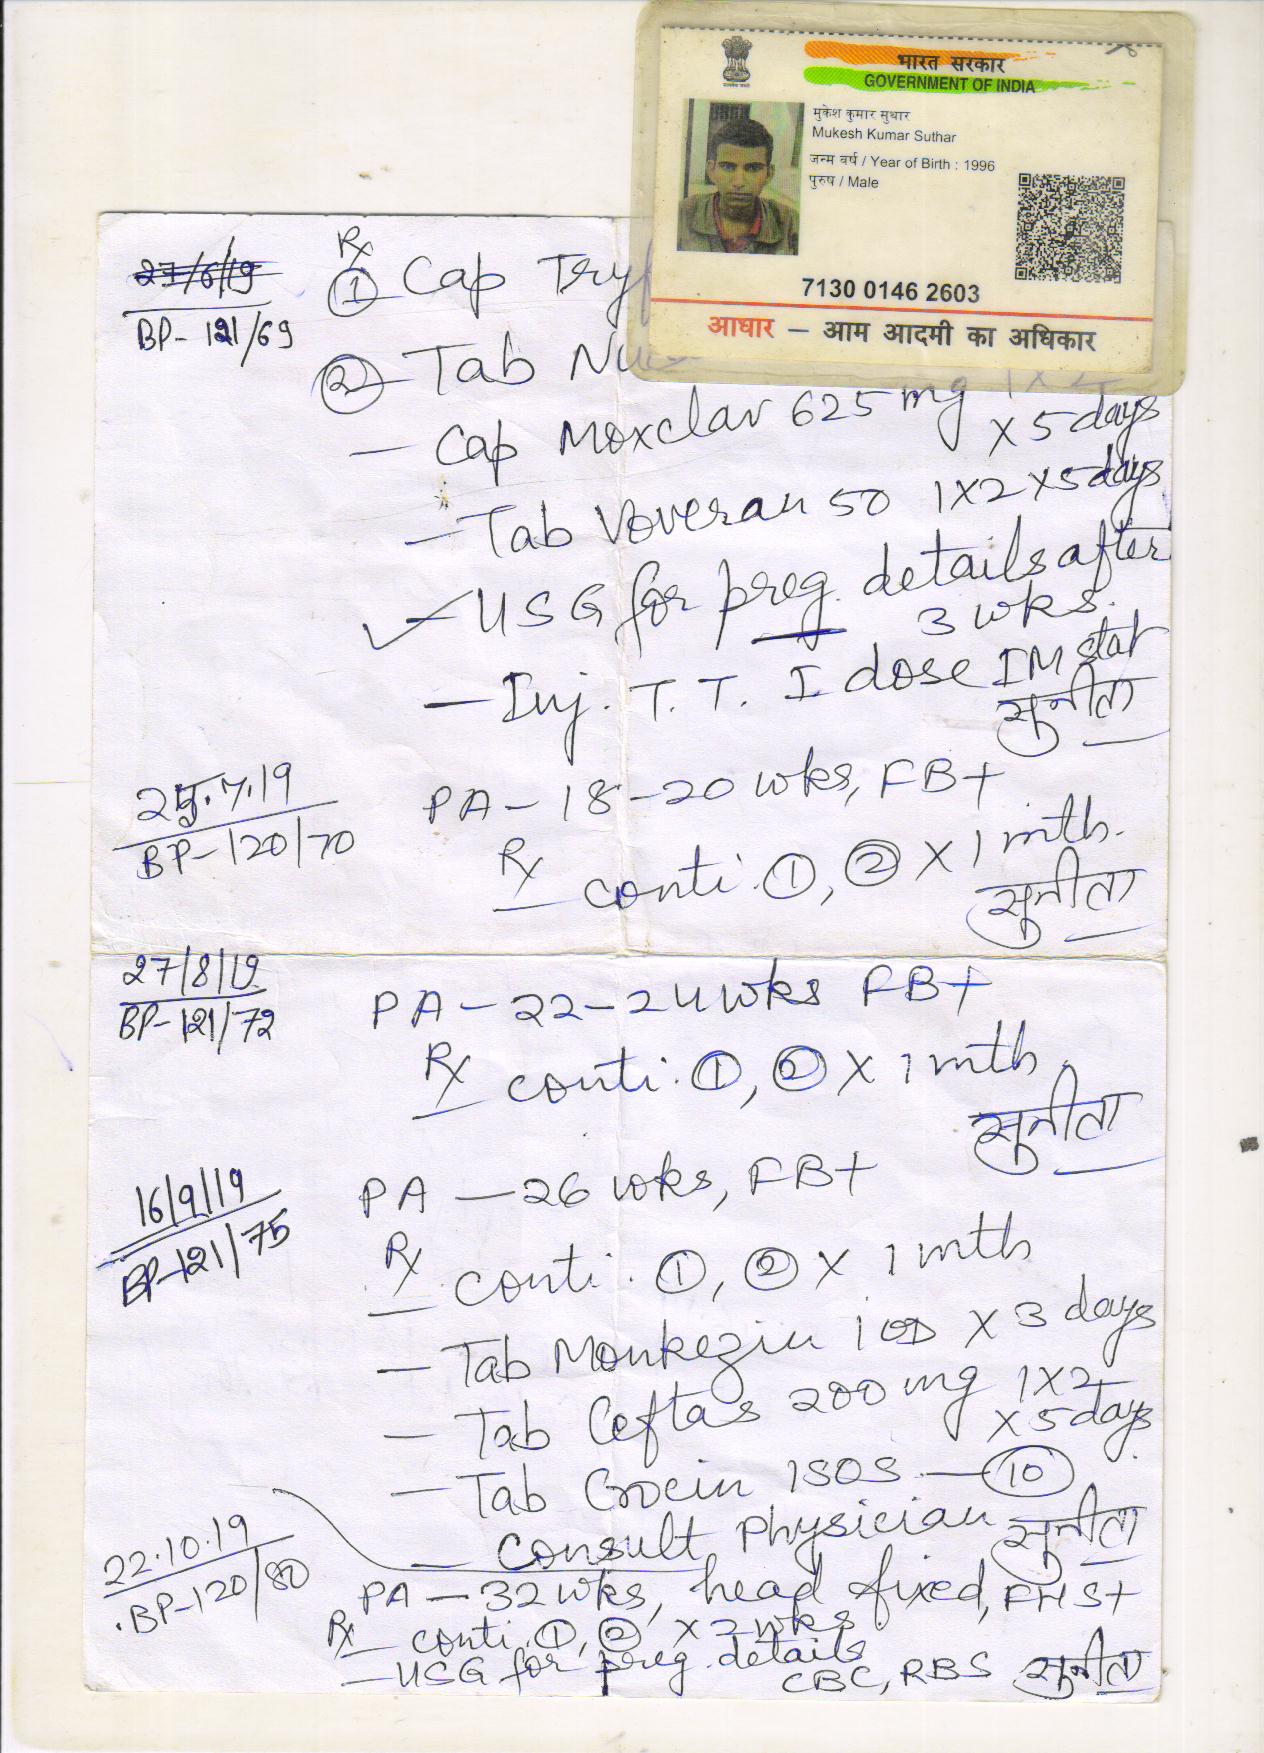 भारत सरकार
GOVERNMENT OF INDIA
मुकेश कुमार सुथार
Mukesh Kumar Suthar
जन्म वर्ष / Year of Birth : 1996
पुरुष / Male
7130 0146 2603
आधार — आम आदमी का अधिकार
27/6/19
BP- 121/69
Rx
① Cap
② Tab
- Cap Moxclav 625 mg 1x2
x 5 days
- Tab Voveran 50 1x2 x 5 days
✓ USG for preg. details after
3 wks.
- Inj. T. T. I dose IM stat
सुनीता
25.7.19
BP-120/70
PA - 18-20 wks, FB+
Rx
conti. ①, ② x 1 mth.
सुनीता
27/8/19
BP-121/72
PA - 22-24 wks FB+
Rx conti. ①, ② x 1 mth.
सुनीता
16/9/19
BP-121/75
PA - 26 wks, FB+
Rx
conti. ①, ② x 1 mth
- Tab 1 OD x 3 days
- Tab Ceftas 200 mg 1x2
x 5 days
- Tab Crocin 1SOS - 10
- Consult Physician
सुनीता
22.10.19
BP-120/80
PA - 32 wks, head fixed, FHS+
Rx conti. ①, ② x 2 wks
- USG for preg. details
CBC, RBS सुनीता